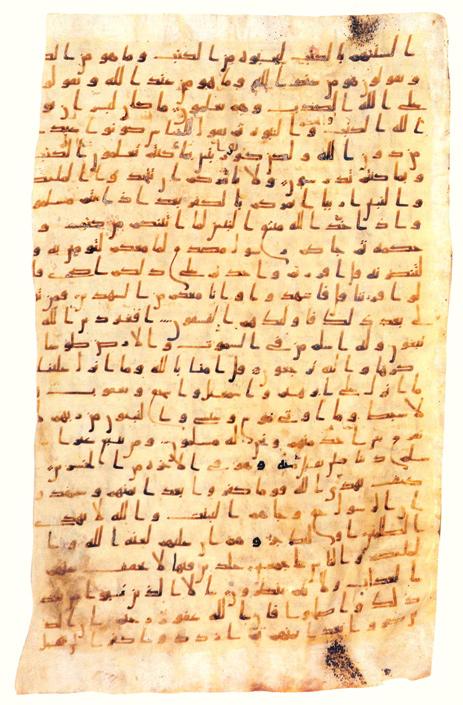 السنتهم بالكتب لتحسبوه من الكتب وما هو من الكتـ
ويقولون هو من عند الله وما هو من عند الله ويقولو
على الله الكذب وهم يعلمون ما كان لبشر ان يو
الله الكتب والنبوة ثم يقول للناس كونوا عبد
من دون الله ولكن كونوا ربنين بما كنتم تعلمون الكتب
وبما كنتم تدرسون ولا يامركم ان تتخذوا المليكـ
والنبين اربابا ايامركم بالكفر بعد اذ انتم مسلمون
واذ اخذ الله ميثق النبين لما اتيتكم من كتب و
حكمة ثم جاكم رسول مصدق لما معكم لتومنن به و
لتنصرنه قال اقررتم واخذتم على ذلكم اصري قا
لوا اقررنا قال فاشهدوا وانا معكم من الشهدين فمن تو
لى بعد ذلك فاوليك هم الفسقون افغير دين الله
يبغون وله اسلم من في السموت والارض طوعا
وكرها واليه ترجعون قل امنا بالله وما انزل علينا
وما انزل على ابرهيم واسمعيل واسحق ويعقوب و
الاسباط وما اوتي موسى وعيسى والنبيون من ربهم لا
نفرق بين احد منهم ونحن له مسلمون ومن يبتغ غير ا
لاسلم دينا فلن يقبل منه وهو في الاخرة من الخسرين
كيف يهدي الله قوما كفروا بعد ايمنهم وشهدوا
ان الرسول حق وجاهم البينت والله لا يهدي
القوم الظلمين اوليك جزاوهم ان عليهم لعنة الله وا
لمليكة والناس اجمعين خلدين فيها لا يخفف عنهم
العذاب ولا هم ينظرون الا الذين تابوا من بعد
ذلك واصلحوا فان الله غفور رحيم ان الذ
كفروا بعد ايمنهم ثم ازدادوا كفرا لن تقبل